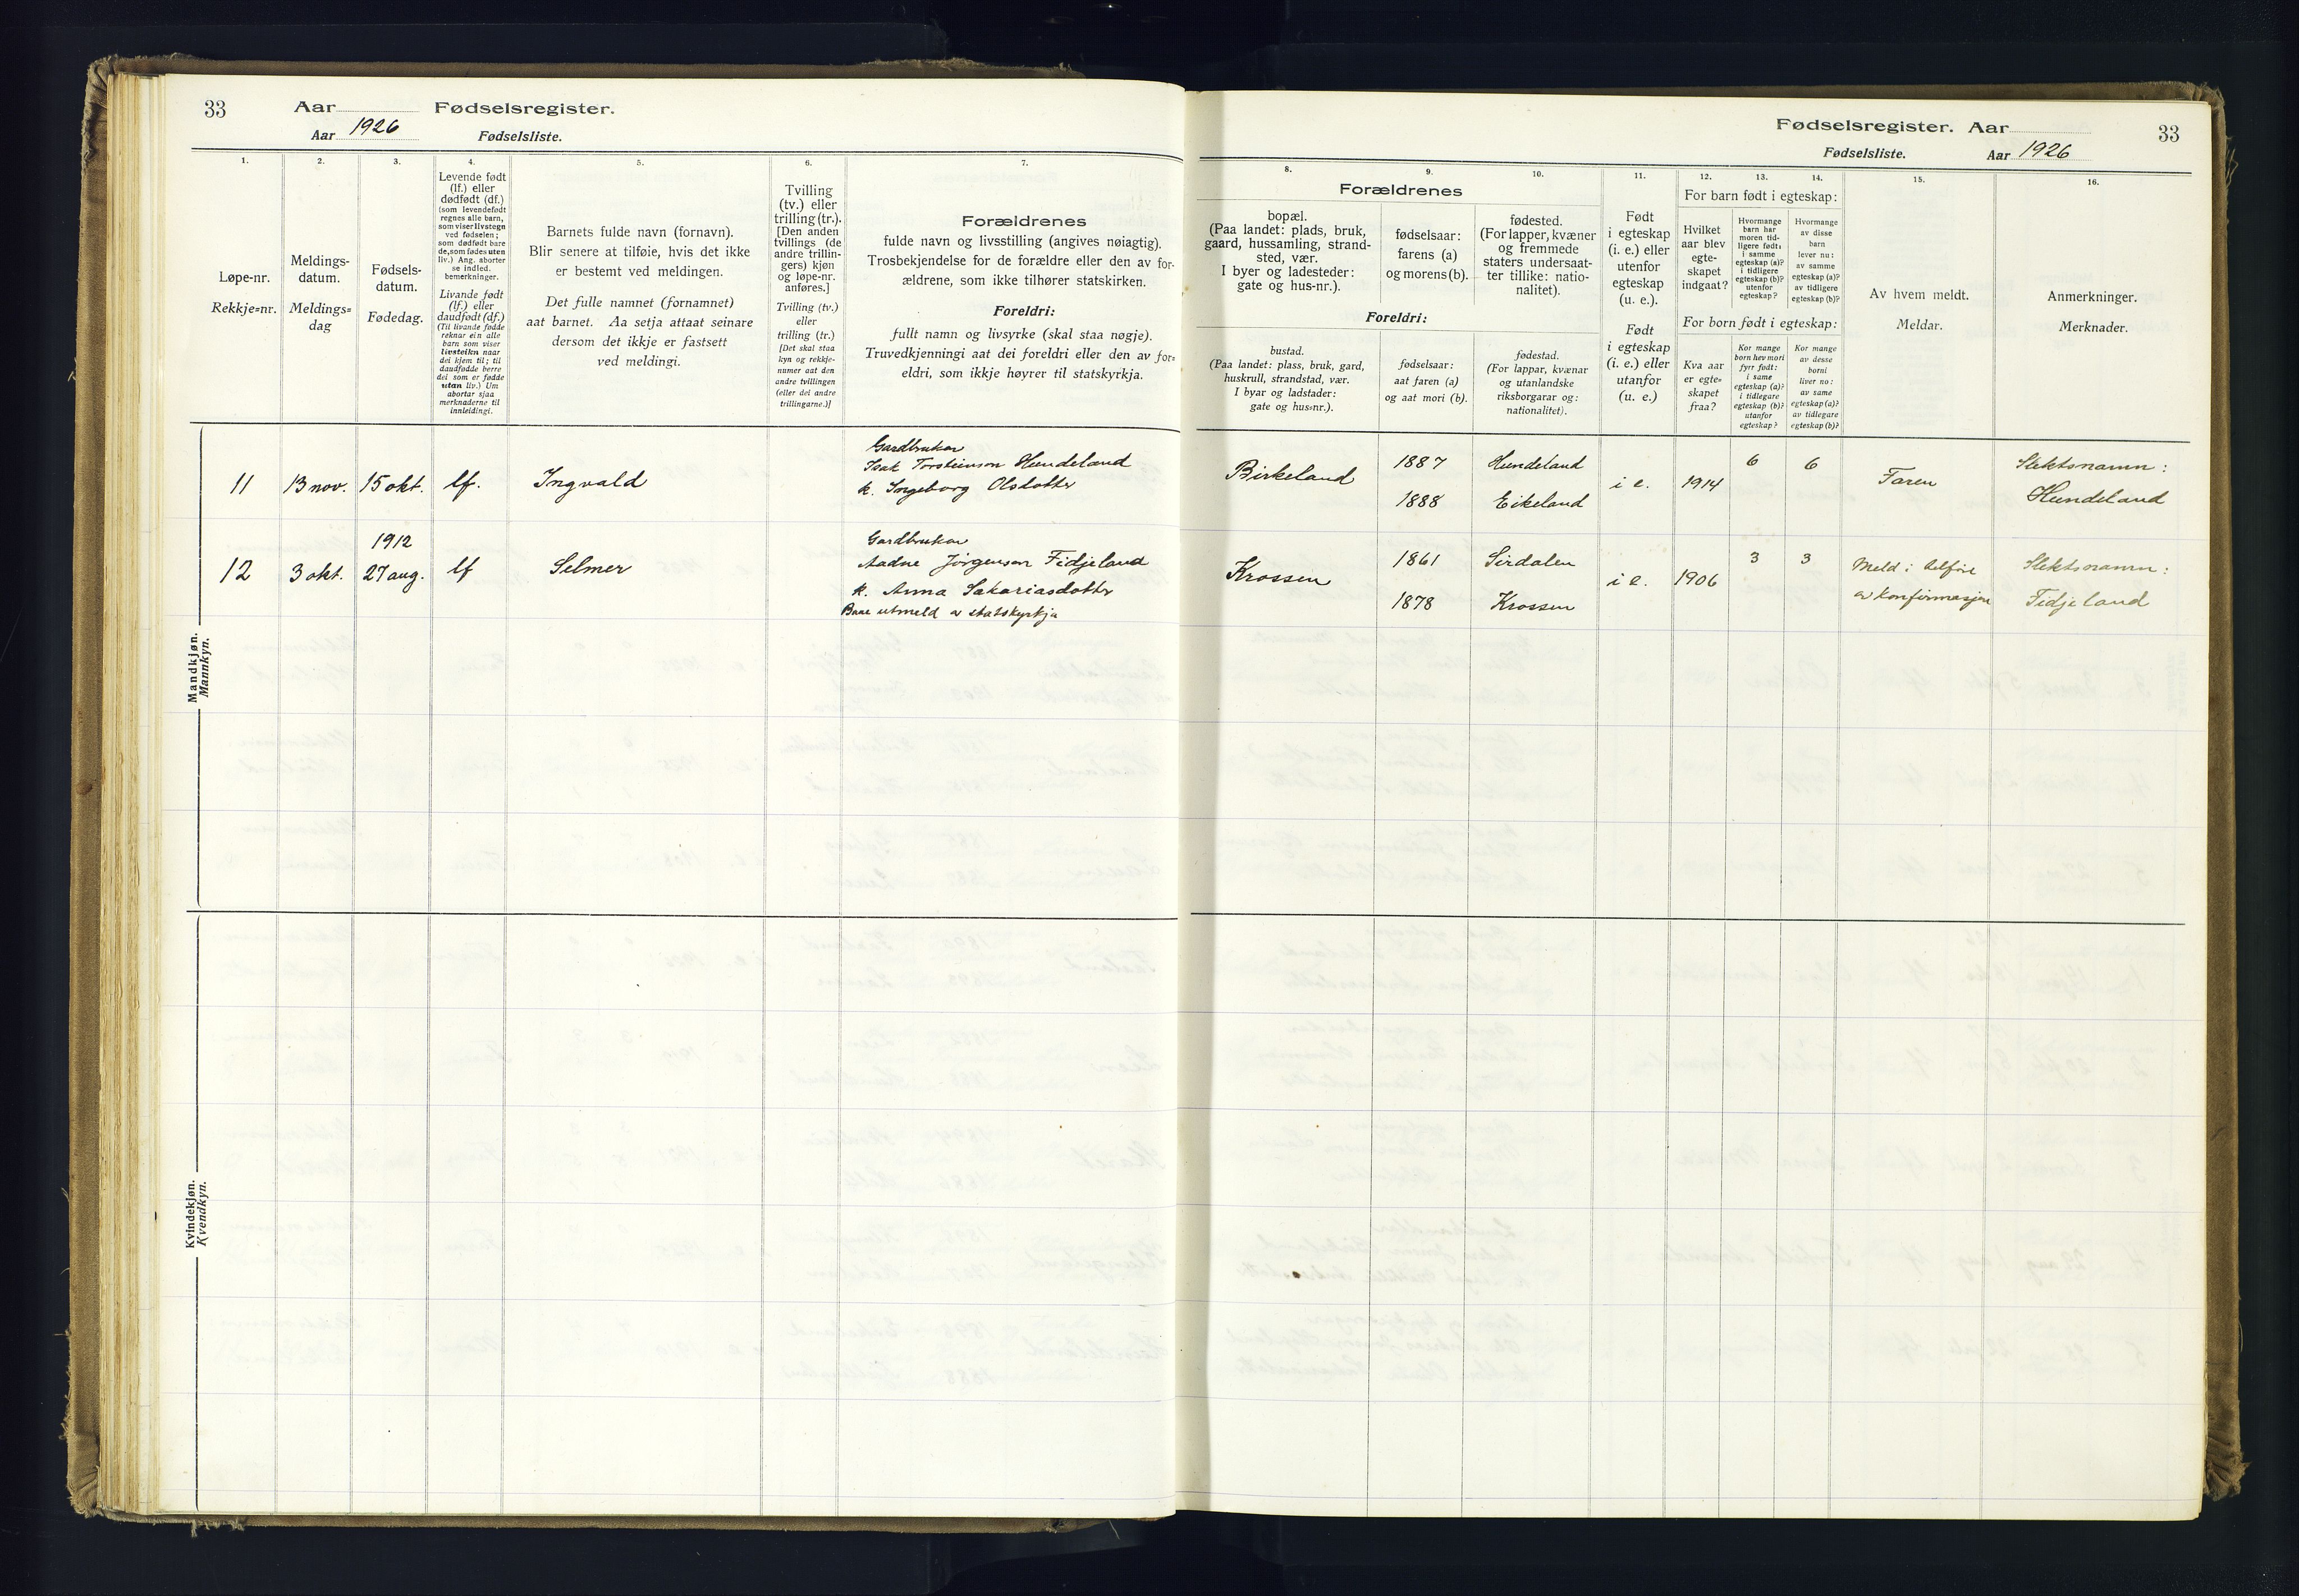 33
Aar
Fødselsregister.
Aar 1926
Fødselsliste.
1.
2.
3.
4.
5.
6.
7.
Løpe-nr.
Rekkje=nr.
Meldings-
datum.
Meldings=
dag
Fødsels-
datum.
Fødedag.
Levende født
(lf.) eller
dødfødt (df.)
(som levendefødt
regnes alle barn,
som viser livstegn
ved fødselen;
som dødfødt bare
de, som fødes uten
liv.) Ang. aborter
se indled.
bemerkninger.
Livande født
(lf.) eller
daudfødt (df.)
(Til livande fødde
reknar ein alle
barn som viser
livsteikn naar
dei kjem til; til
daudfødde berre
dei som er fødde
utan liv.) Um
abortar sjaa
merknaderne til
innleidingi.
Barnets fulde navn (fornavn).
Blir senere at tilføie, hvis det ikke
er bestemt ved meldingen.
Det fulle namnet (fornamnet)
aat barnet. Aa setja attaat seinare
dersom det ikkje er fastsett
ved meldingi.
Tvilling
(tv.) eller
trilling (tr.).
[Den anden
tvillings (de
andre trillin-
gers) kjøn
og løpe-nr.
anføres.]
Tvilling (tv.)
eller
trilling (tr.)
[Det skal staa
kyn og rekkje-
numer aat den
andre tvillingen
(eller dei andre
trillingarne.)]
Forældrenes
fulde navn og livsstilling (angives nøiagtig).
Trosbekjendelse for de forældre eller den av for-
ældrene, som ikke tilhører statskirken.
Foreldri:
fullt namn og livsyrke (skal staa nøgje).
Truvedkjenningi aat dei foreldri eller den av for=
eldri, som ikkje høyrer til statskyrkja.
Mandkjøn.
Mannkyn.
11
13 nov.
15 okt.
lf.
Ingvald
Gardbrukar
Isak Torsteinson Hundeland
k. Ingeborg Olsdotter
12
3 okt.
1912
27 aug.
lf
Selmer
Gardbrukar
Aadne Jørgenson Fidjeland
k. Anna Sakariasdotter
Bae utmeld av statskyrkja
Kvindekjøn.
Kvendkyn.
Fødselsregister. Aar
33
Fødselsliste.
Aar 1926
8.
9.
10.
11.
12.
13.
14.
15.
16.
Forældrenes
bopæl.
(Paa landet: plads, bruk,
gaard, hussamling, strand-
sted, vær.
I byer og ladesteder:
gate og hus-nr.).
fødselsaar:
farens (a)
og morens (b).
fødested.
(For lapper, kvæner
og fremmede
staters undersaat-
ter tillike: natio-
nalitet).
Foreldri:
bustad.
(Paa landet: plass, bruk, gard,
huskrull, strandstad, vær.
I byar og ladstader:
gate og hus=nr.).
fødselsaar:
aat faren (a)
og aat mori (b).
fødestad.
(For lappar, kvænar
og utanlandske
riksborgarar og:
nationalitet).
Født
i egteskap
(i. e.) eller
utenfor
egteskap
(u. e.).
Født
i egteskap
(i. e.) eller
utanfor
(u. e.)
For barn født i egteskap:
Hvilket
aar blev
egte-
skapet
indgaat?
Hvormange
barn har
moren tid-
ligere født:
i samme
egteskap (a)?
i tidligere
egteskap (b)?
utenfor
egteskap?
Hvormange
av disse
barn
lever nu:
av samme
egteskap (a)?
av tidligere
egteskap (b)?
For born født i egteskap:
Kva aar
er egte=
skapet
fraa?
Kor mange
born hev mori
fyrr født:
i same
egteskap (a)?
i tidlegare
egteskap (b)?
utanfor
egteskap?
Kor mange
av desse
borni
liver no:
av same
egteskap (a)?
av tidlegare
egteskap (b)?
Av hvem meldt.
Meldar.
Anmerkninger.
Merknader.
Birkeland
1887
1888
Hundeland
Eikeland
i e.
1914
6
6
Faren
Slektsnamn:
Hundeland
Krossen
1861
1878
Sirdalen
Krossen
i e.
1906
3
3
Meld i tilføre
av konfirmasjon
Slektsnamn:
Fidjeland